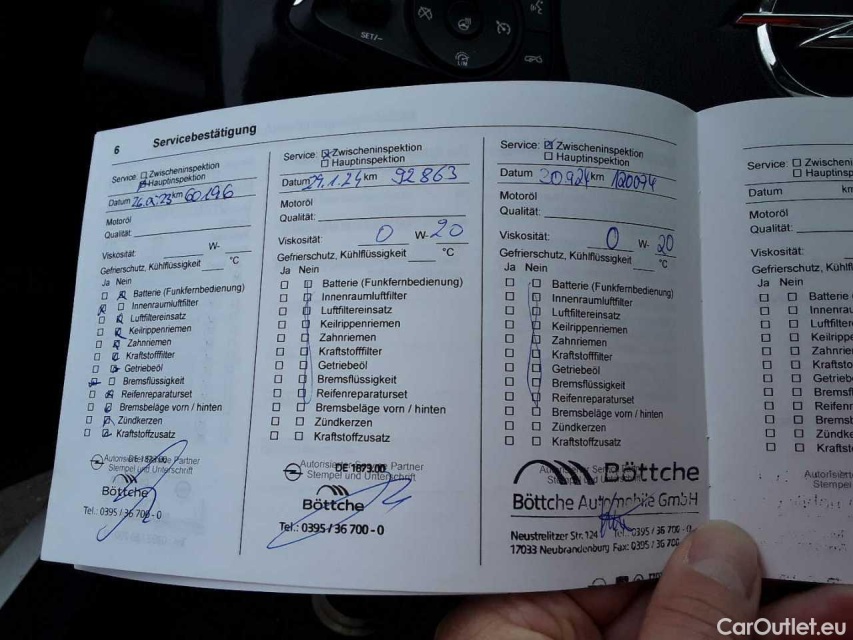 SET/–
LIM
6 Servicebestätigung
Service: Zwischeninspektion
Hauptinspektion
Datum km 60196
Motoröl
Qualität:
Viskosität: W-
Gefrierschutz, Kühlflüssigkeit °C
Ja Nein
Batterie (Funkfernbedienung)
Innenraumluftfilter
Luftfiltereinsatz
Keilrippenriemen
Zahnriemen
Kraftstofffilter
Getriebeöl
Bremsflüssigkeit
Reifenreparaturset
Bremsbeläge vorn / hinten
Zündkerzen
Kraftstoffzusatz
DE 1873.00
Stempel und Unterschrift
Böttche
Tel.: 0395 / 36 700 - 0
Service: Zwischeninspektion
Hauptinspektion
Datum 29.1.24 km 92863
Motoröl
Qualität:
Viskosität: 0 W- 20
Gefrierschutz, Kühlflüssigkeit °C
Ja Nein
Batterie (Funkfernbedienung)
Innenraumluftfilter
Luftfiltereinsatz
Keilrippenriemen
Zahnriemen
Kraftstofffilter
Getriebeöl
Bremsflüssigkeit
Reifenreparaturset
Bremsbeläge vorn / hinten
Zündkerzen
Kraftstoffzusatz
DE 1873.00 Partner
Stempel und Unterschrift
Böttche
Tel.: 0395 / 36 700 - 0
Service: Zwischeninspektion
Hauptinspektion
Datum 20924 km 120074
Motoröl
Qualität:
Viskosität: 0 W- 20
Gefrierschutz, Kühlflüssigkeit °C
Ja Nein
Batterie (Funkfernbedienung)
Innenraumluftfilter
Luftfiltereinsatz
Keilrippenriemen
Zahnriemen
Kraftstofffilter
Getriebeöl
Bremsflüssigkeit
Reifenreparaturset
Bremsbeläge vorn / hinten
Zündkerzen
Kraftstoffzusatz
Böttche
Böttche Automobile GmbH
Neustrelitzer Str. 124 Tel.: 0395 / 36 700 - 0
17033 Neubrandenburg Fax: 0395 / 36 700
Service: Zwischeni
Hauptinsp
Datum km
Motoröl
Qualität:
Viskosität:
Gefrierschutz, Kühlflüssi
Ja Nein
Batterie
Innenrau
Luftfilter
Keilrippe
Zahnrie
Kraftsto
Getrieb
Bremsf
Reifenr
Bremsb
Zündke
Kraftst
Autorisiert
Stempel
CarOutlet.eu